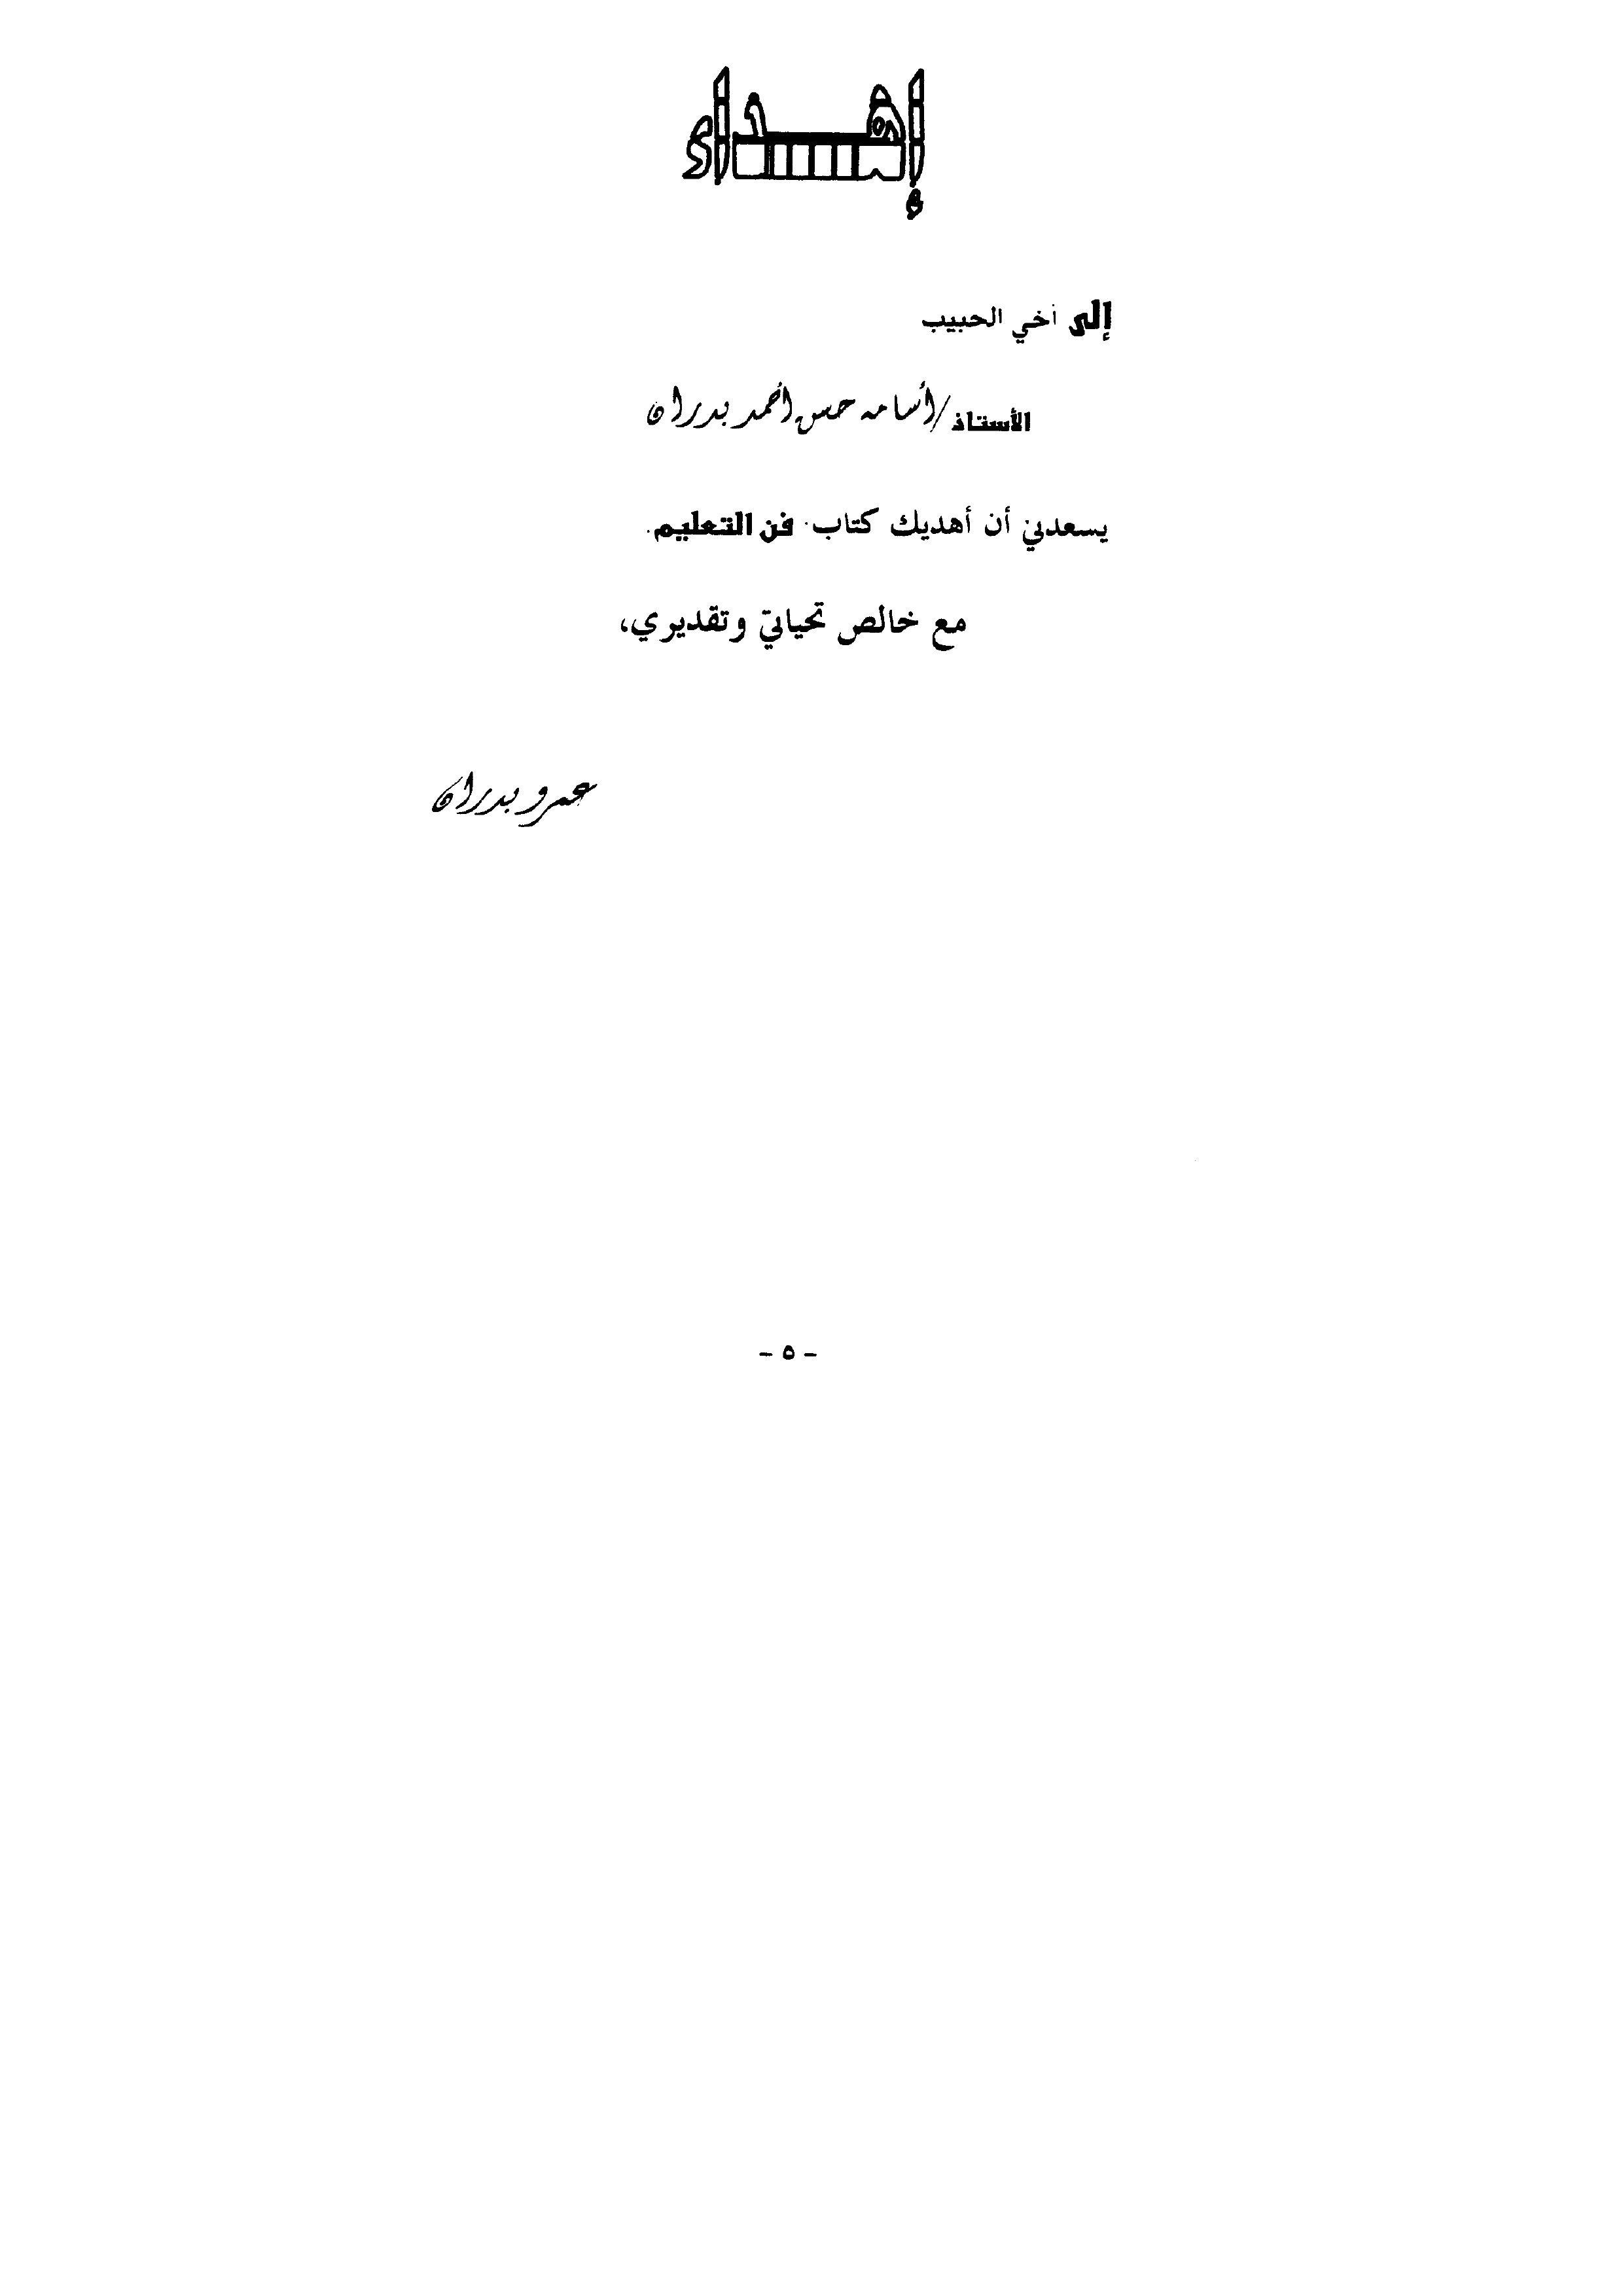 إهـــداء
إلى أخي الحبيب
الأستاذ/ أسامه حسن أحمد بدران
يسعدني أن أهديك كتاب فن التعليم.
مع خالص تحياتي وتقديري،
عمرو بدران
- ٥ -